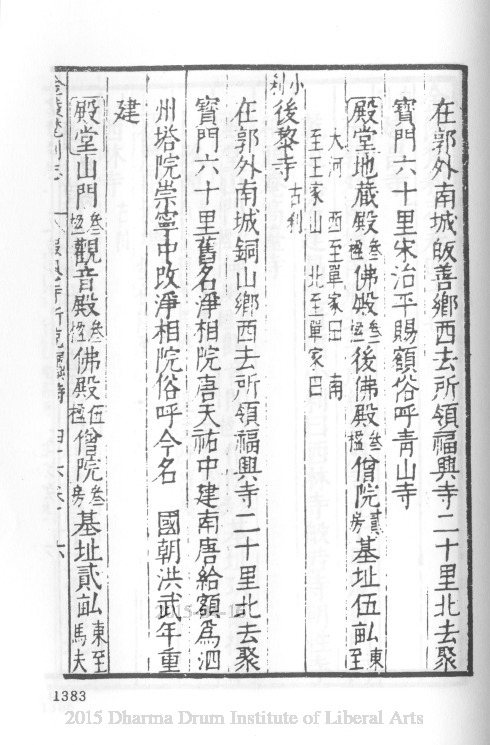 在郭外南城皈善鄉西去所領福興寺二十里北去聚
寶門六十里宋治平賜額俗呼青山寺
殿堂地藏殿叁楹佛殿叁楹後佛殿叁楹僧院貳房基址伍畝東至
大河 西至單家田 南
至王家山 北至單家田
小剎後黎寺古剎
在郭外南城銅山鄉西去所領福興寺二十里北去聚
寶門六十里舊名淨相院唐天祐中建南唐給額爲泗
州塔院崇寧中改淨相院俗呼今名 國朝洪武年重
建
殿堂山門叁楹觀音殿叁楹佛殿伍楹僧院叁房基址貳畝東至馬夫
金陵梵剎志
1383
2015 Dharma Drum Institute of Liberal Arts